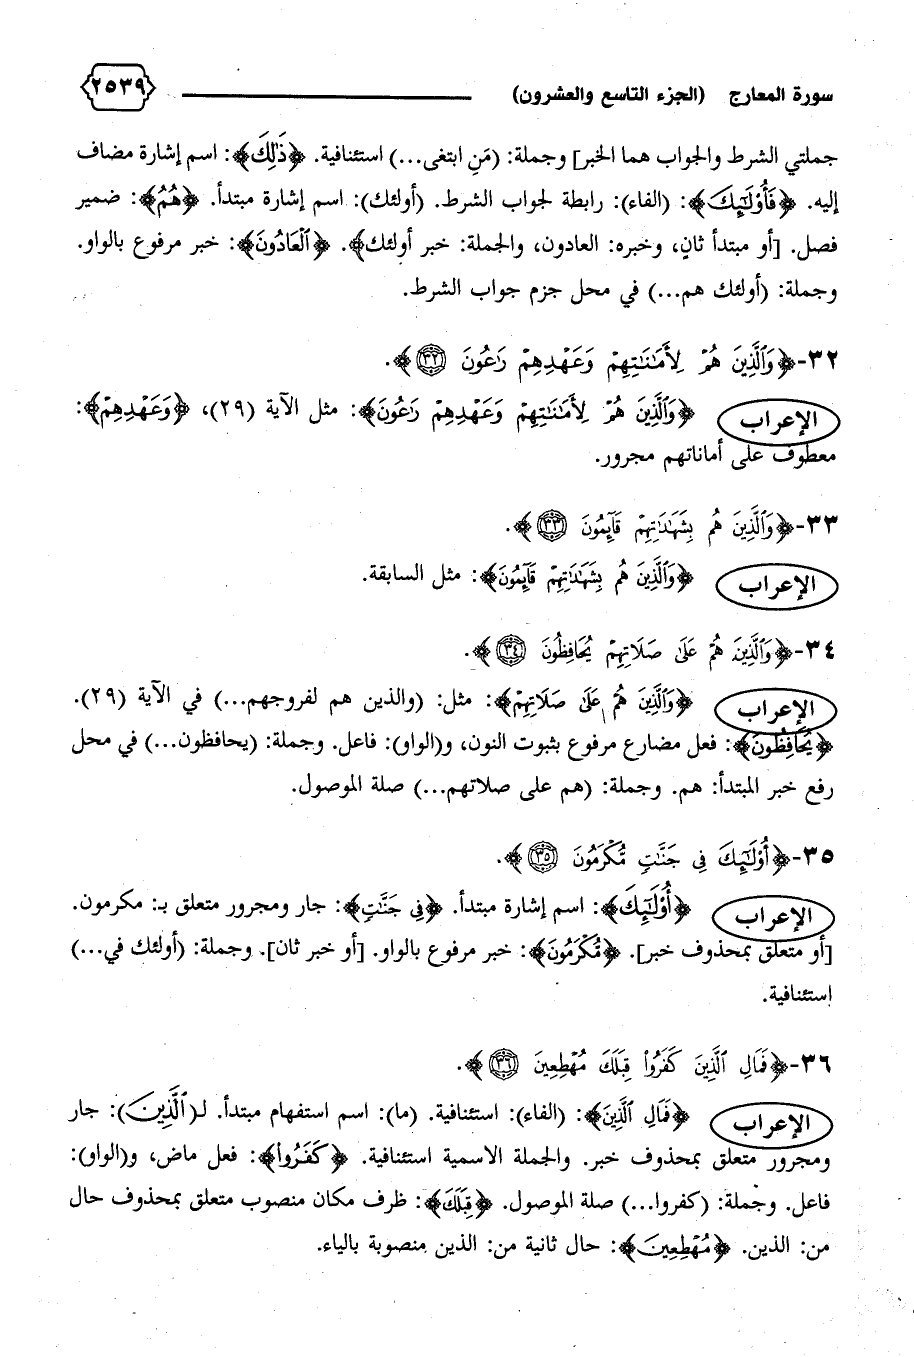 سورة المعارج (الجزء التاسع والعشرون) ٢٥٣٩
جملتي الشرط والجواب هما الخبر] وجملة: (مَنِ ابتغى...) استئنافية. ﴿ذَٰلِكَ﴾: اسم إشارة مضاف
إليه. ﴿فَأُوْلَٰٓئِكَ﴾: (الفاء): رابطة لجواب الشرط. (أولئك): اسم إشارة مبتدأ. ﴿هُمُ﴾: ضمير
فصل. [أو مبتدأ ثانٍ، وخبره: العادون، والجملة: خبر أولئك﴾. ﴿ٱلْعَادُونَ﴾: خبر مرفوع بالواو.
وجملة: (أولئك هم...) في محل جزم جواب الشرط.
٣٢-﴿وَٱلَّذِينَ هُمْ لِأَمَٰنَٰتِهِمْ وَعَهْدِهِمْ رَٰعُونَ ٣٢﴾.
الإعراب ﴿وَٱلَّذِينَ هُمْ لِأَمَٰنَٰتِهِمْ وَعَهْدِهِمْ رَٰعُونَ﴾: مثل الآية (٢٩)، ﴿وَعَهْدِهِمْ﴾:
معطوف على أماناتهم مجرور.
٣٣-﴿وَٱلَّذِينَ هُم بِشَهَٰدَٰتِهِمْ قَآئِمُونَ ٣٣﴾.
الإعراب ﴿وَٱلَّذِينَ هُم بِشَهَٰدَٰتِهِمْ قَآئِمُونَ﴾: مثل السابقة.
٣٤-﴿وَٱلَّذِينَ هُمْ عَلَىٰ صَلَاتِهِمْ يُحَافِظُونَ ٣٤﴾.
الإعراب ﴿وَٱلَّذِينَ هُمْ عَلَىٰ صَلَاتِهِمْ﴾: مثل: (والذين هم لفروجهم...) في الآية (٢٩).
﴿يُحَافِظُونَ﴾: فعل مضارع مرفوع بثبوت النون، و(الواو): فاعل. وجملة: (يحافظون...) في محل
رفع خبر المبتدأ: هم. وجملة: (هم على صلاتهم...) صلة الموصول.
٣٥-﴿أُوْلَٰٓئِكَ فِى جَنَّٰتٍ مُّكْرَمُونَ ٣٥﴾.
الإعراب ﴿أُوْلَٰٓئِكَ﴾: اسم إشارة مبتدأ. ﴿فِى جَنَّٰتٍ﴾: جار ومجرور متعلق بـ: مكرمون.
[أو متعلق بمحذوف خبر]. ﴿مُّكْرَمُونَ﴾: خبر مرفوع بالواو. [أو خبر ثان]. وجملة: (أولئك في...)
استئنافية.
٣٦-﴿فَمَالِ ٱلَّذِينَ كَفَرُوا۟ قِبَلَكَ مُهْطِعِينَ ٣٦﴾.
الإعراب ﴿فَمَالِ ٱلَّذِينَ﴾: (الفاء): استئنافية. (ما): اسم استفهام مبتدأ. لـ(ٱلَّذِينَ): جار
ومجرور متعلق بمحذوف خبر. والجملة الاسمية استئنافية. ﴿كَفَرُوا۟﴾: فعل ماض، و(الواو):
فاعل. وجملة: (كفروا...) صلة الموصول. ﴿قِبَلَكَ﴾: ظرف مكان منصوب متعلق بمحذوف حال
من: الذين. ﴿مُهْطِعِينَ﴾: حال ثانية من: الذين منصوبة بالياء.